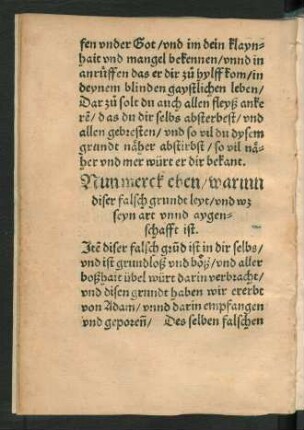 fen vnder Got/vnd im dein klayn⸗
hait vnd mangel bekennen/vnnd in
anrůffen das er dir zů hylff kom/in
deynem blinden gaystlichen leben/
Dar zů solt du auch allen fleyß anke
rē/das du dir selbs absterbest/vnd
allen gebresten/vnd so vil du dysem
grundt näher abstirbst/so vil nä⸗
her vnd mer würt er dir bekant.
Nun merck eben/warumm
diser falsch grundt leyt/vnd wz
seyn art vnnd aygen⸗
schafft ist.
Itē diser falsch grūd ist in dir selbs/
vnd ist grundloß vnd bőß/vnd aller
boßhait übel würt darin verbracht/
vnd disen grundt haben wir ererbt
von Adam/vnnd darin empfangen
vnd geporen̄/ Des selben falschen